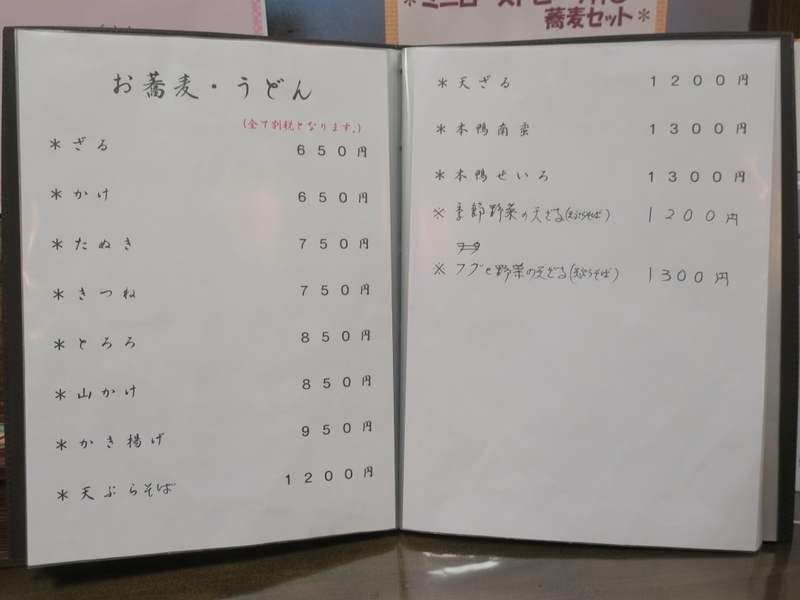 蕎麦セット*
お蕎麦・うどん
(全て別税となります。)
*ざる 650円
*かけ 650円
*たぬき 750円
*きつね 750円
*とろろ 850円
*山かけ 850円
*かき揚げ 950円
*天ぷらそば 1200円
*天ざる 1200円
*本鴨南蛮 1300円
*本鴨せいろ 1300円
※季節野菜の天ざる(天ぷらそば) 1200円
※フグと野菜の天ざる(天ぷらそば) 1300円